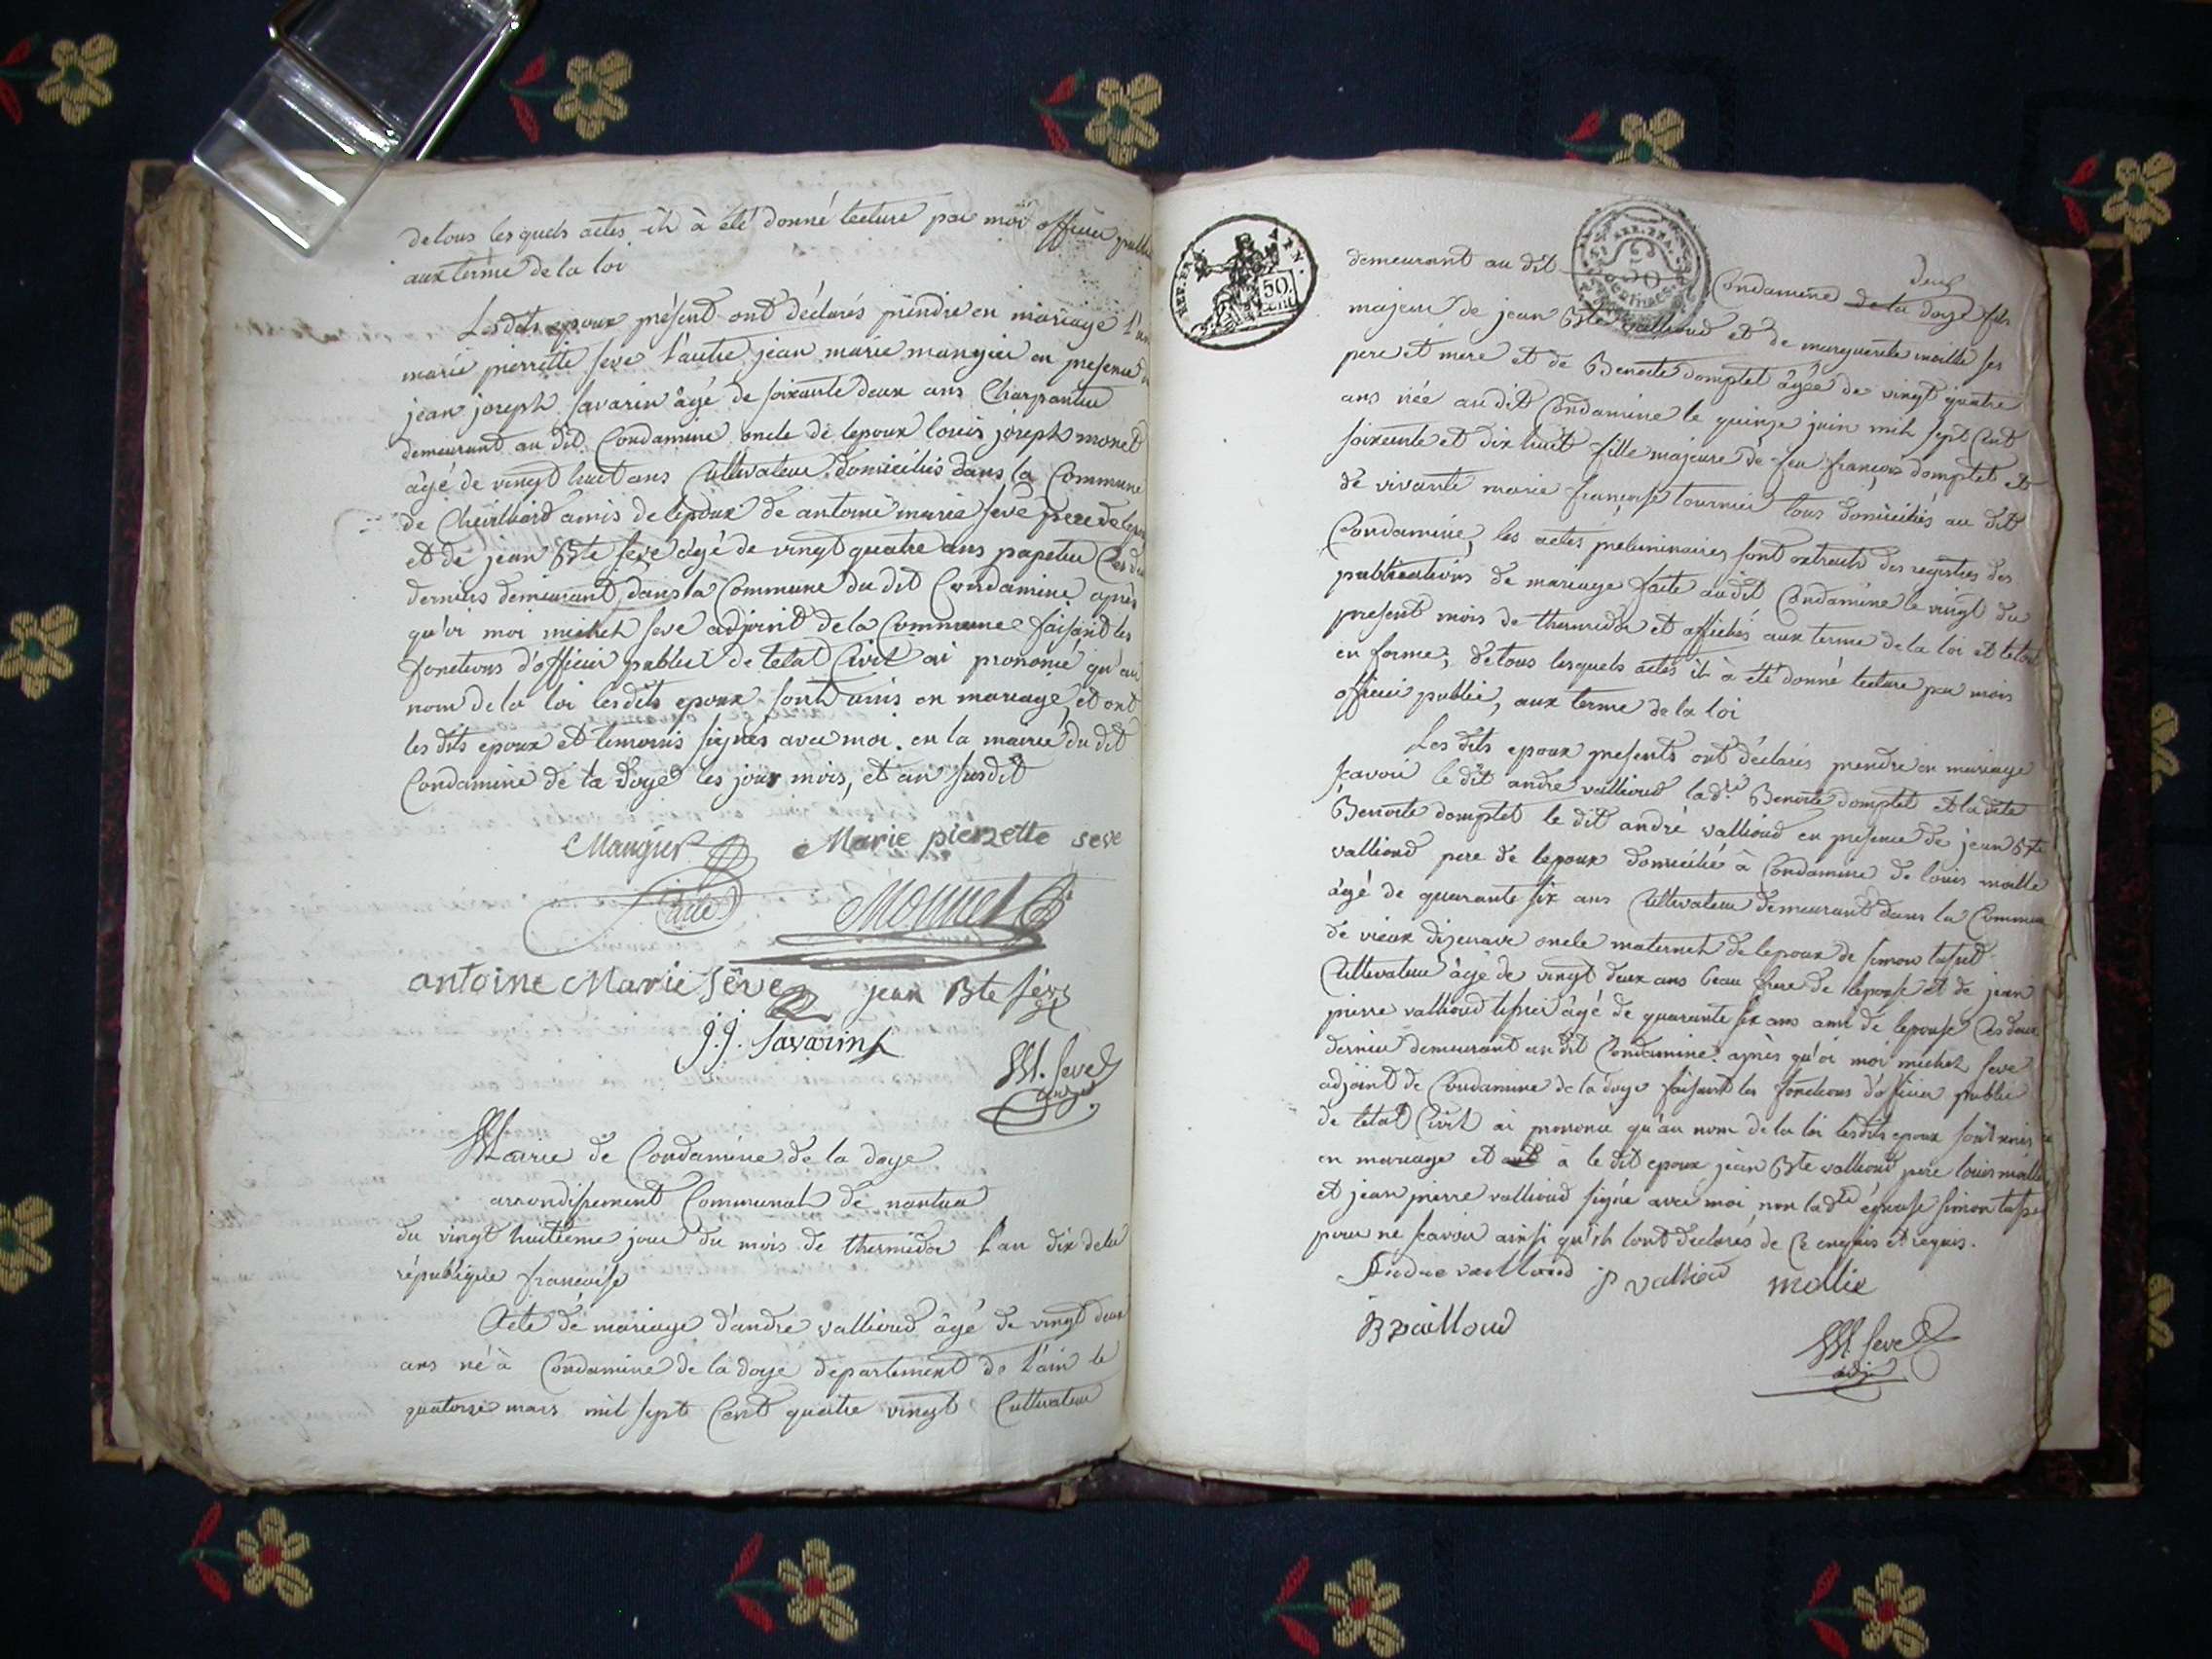 de tous les quels actes il à été donné lecture par moi officier public
aux terme de la loi
Les dits epoux présent ont déclarés prendre en mariage L'un
marie pierrette seve l'autre jean marie mangier en presence
jean joseph Savarin âgé de soixante deux ans Charpentier
demeurant au dit Condamine oncle de lepoux louis joseph monet
âgé de vingt huit ans Cultivateur domiciliés dans la Commune
de Chevilliard amis de lepoux de antoine marie seve pere de
et de jean Bte seve âgé de vingt quatre ans papetier Ces
derniers demeurant dans la Commune du dit Condamine après
qu'oi moi michel seve adjoint de la Commune faisant les
fonctions d'officier public de letat Civil ai prononcé qu'au
nom de la loi les dits epoux sont unis en mariage, et ont
les dits epoux et temoins signés avec moi. en la mairie du dit
Condamine de la doye les jour mois, et an susdit
Mangier Marie pierrette seve
Monnet
antoine Marie Sève jean Bte sève
j.j. Savarin
M. Seve
adj
Mairie de Condamine de la doye
arrondissement Communal de nantua
du vingt huitieme jour du mois de thermidor L'an dix de la
république francaise
Acte de mariage d'andre vallioud âgé de vingt deux
ans né à Condamine de la doye departement de L'ain le
quatorze mars mil sept Cent quatre vingt Cultivateur
REP. FRA.
50
Cent
demeurant au dit Condamine de la doye fils
majeur de jean Bte vallioud et de marguerite moille ses
pere et mere et de Benoite domptet âgée de vingt quatre
ans née au dit Condamine le quinze juin mil sept Cent
soixante et dix huit fille majeure de feu françois domptet et
de vivante marie françoise tournier tous domiciliés au dit
Condamine, les actes preliminaires sont extraits des registres des
publications de mariage faite au dit Condamine le vingt du
present mois de thermidor et affichés aux terme de la loi et le tout
en forme; de tous lesquels actes il à été donné lecture par mois
officier public, aux terme de la loi
Les dits epoux presents ont déclarés prendre en mariage
scavoir le dit andre vallioud la dte Benoite domptet et la dite
Benoite domptet le dit andré vallioud en presence de jean Bte
vallioud pere de lepoux domicilié à Condamine de louis moille
âgé de quarante six ans Cultivateur demeurant dans la Commune
de vieux dizenave oncle maternel de lepoux de simon
Cultivateur âgé de vingt deux ans beau frere de lepouse et de jean
pierre vallioud âgé de quarante six ans ami de lepouse Ces deux
dernier demeurant au dit Condamine. après qu'oi moi michel seve
adjoint de Condamine de la doye faisant les fonctions d'officier public
de letat Civil ai prononcé qu'au nom de la loi les dits epoux sont unis
en mariage et à le dit epoux jean Bte vallioud pere louis moille
et jean pierre vallioud signé avec moi, non la dte épouse simon
pour ne scavoir ainsi qu'ils lont declarés de Ce enquis et requis.
Andre vaillioud jp vallioud
M. Seve
adj